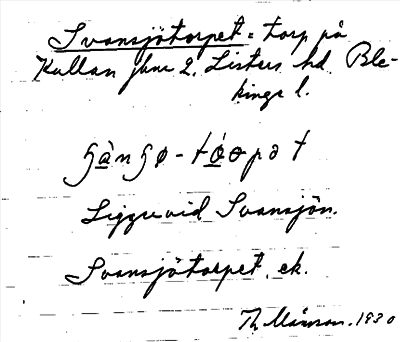 Svansjötorpet = torp på
Kullan jbnr 2. Listers hd. Ble-
kinge l.
Ligger vid Svansjön.
Svansjötorpet. ek.
Th. Månsson. 1930